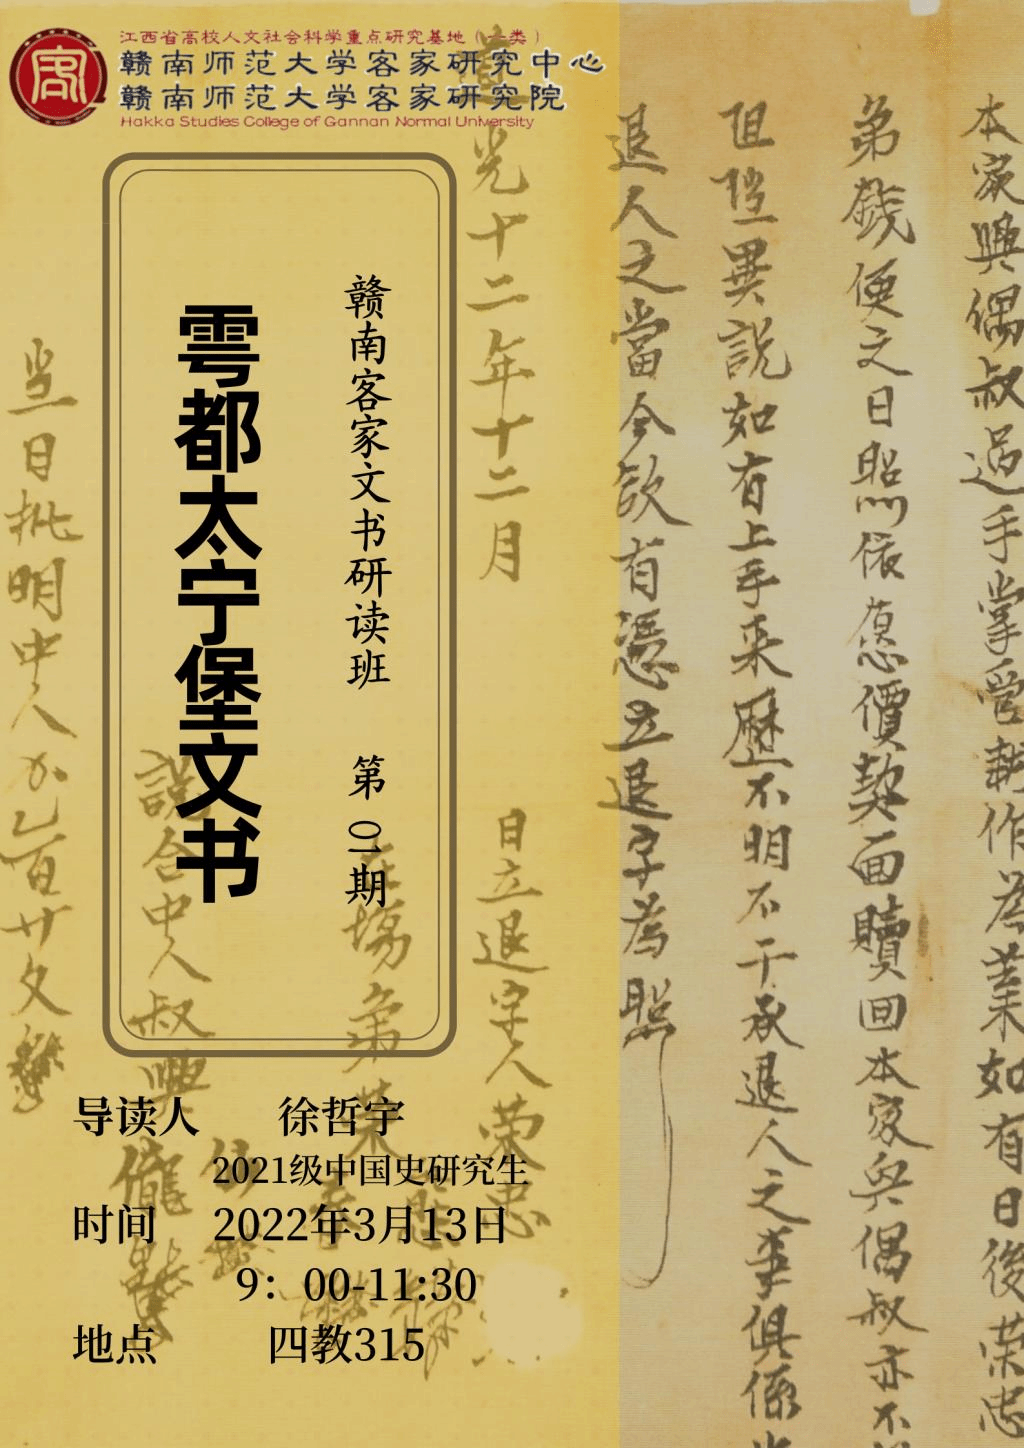 江西省高校人文社会科学重点研究基地（一类）
赣南师范大学客家研究中心
赣南师范大学客家研究院
Hakka Studies College of Gannan Normal University
赣南客家文书研读班 第01期
雩都太宁堡文书
导读人 徐哲宇
2021级中国史研究生
时间 2022年3月13日
9：00-11:30
地点 四教315
本家與偶叔過手掌管耕作為業如有日後荣忠
弟錢便之日照依愿價契面贖回本家與偶叔亦不
阻挡異説如有上手来歷不明不干承退人之事俱係
退人之當今欲有憑立退字為照
道光十二年十二月 日立退字人荣忠
在塲弟荣
説合中人叔興
当日批明中人